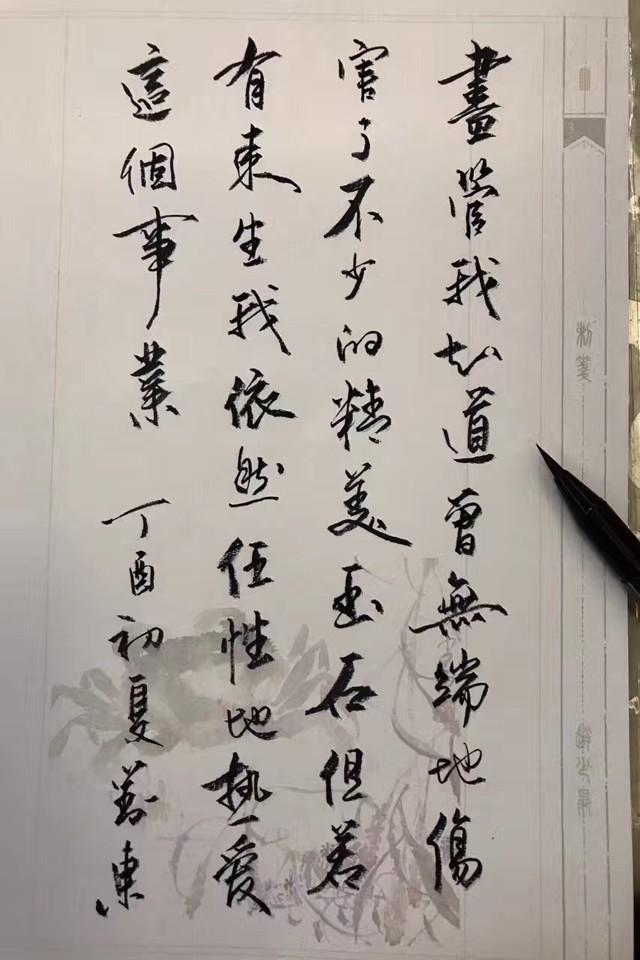 畫管我知道曾無端地傷
害了不少的精美玉石但若
有來生我依然任性地热愛
這個事業
丁酉初夏